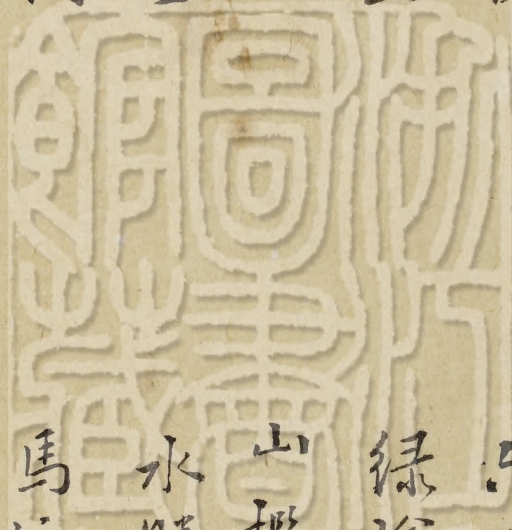 浙江
圖書
館藏
緑
山
水
馬